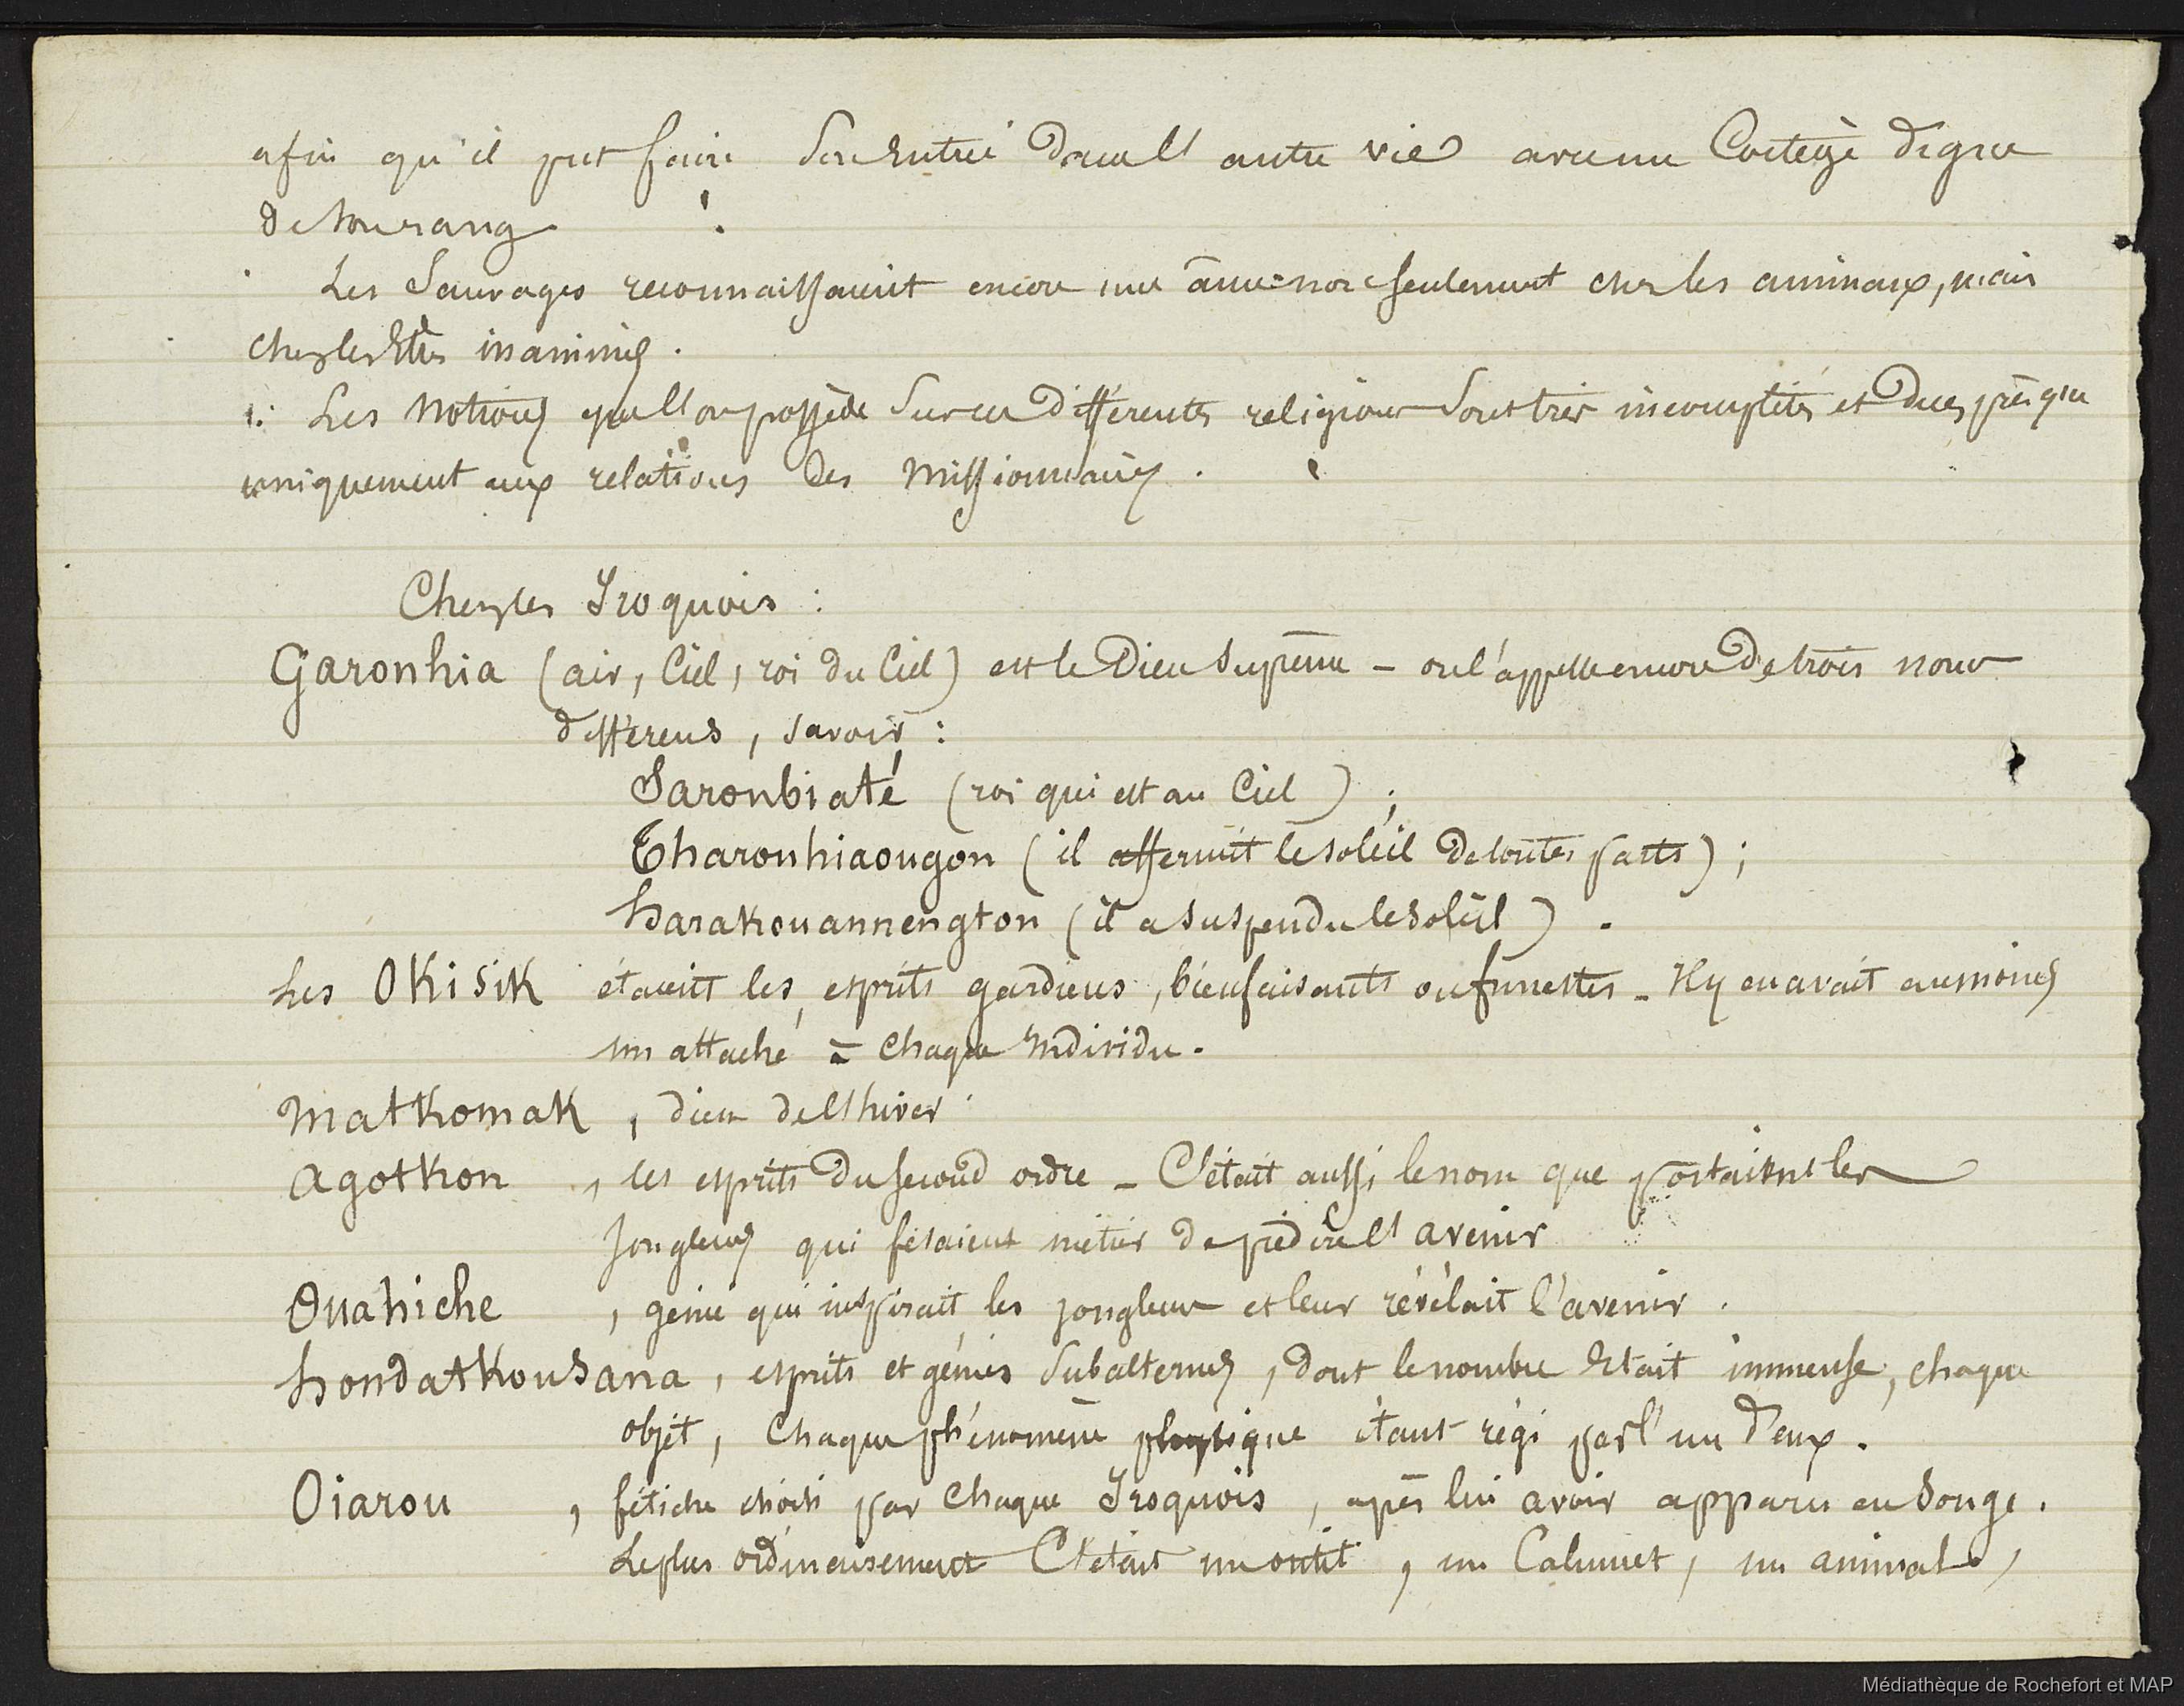 afin qu'il put faire son Entrée dans l'autre vie avec un Cortège digne
de son rang
Les Sauvages reconnaissaient encore une âme non seulement chez les animaux, mais
chez les Etres inanimés.
Les Notions que l'on possède sur ces différentes religions sont très incomplètes et dues presque
uniquement aux relations des Missionnaires.
Chez les Iroquois :
Garonhia (air, Ciel, roi du Ciel) est le Dieu Suprême - on l'appelle encore de trois noms
différens, savoir :
Saronbiaté (roi qui est au Ciel) ;
Tharonhiaougon (il affermit le soleil de toutes parts) ;
harakouannengton (il a suspendu le soleil) .
Les Okisik étaient les esprits gardiens, bienfaisants ou funestes - Il y en avait au moins
un attaché à chaque Individu.
Matkomak , dieu de l'hiver
Agotkon , les esprits du second ordre - C'était aussi le nom que portaient les
Jongleurs qui fesaient métier de prédire l'avenir
Ouahiche , génie qui inspirait les jongleurs et leur révélait l'avenir.
hondatkonsana , esprits et génies subalternes, dont le nombre Etait immense, chaque
objet, chaque phénomène physique étant régi par l'un d'eux.
Oiarou , fétiche choisi par chaque Iroquois, après lui avoir apparu en songe.
Le plus ordinairement C'était un outil, un Calumet, un animal,
Médiathèque de Rochefort et MAP